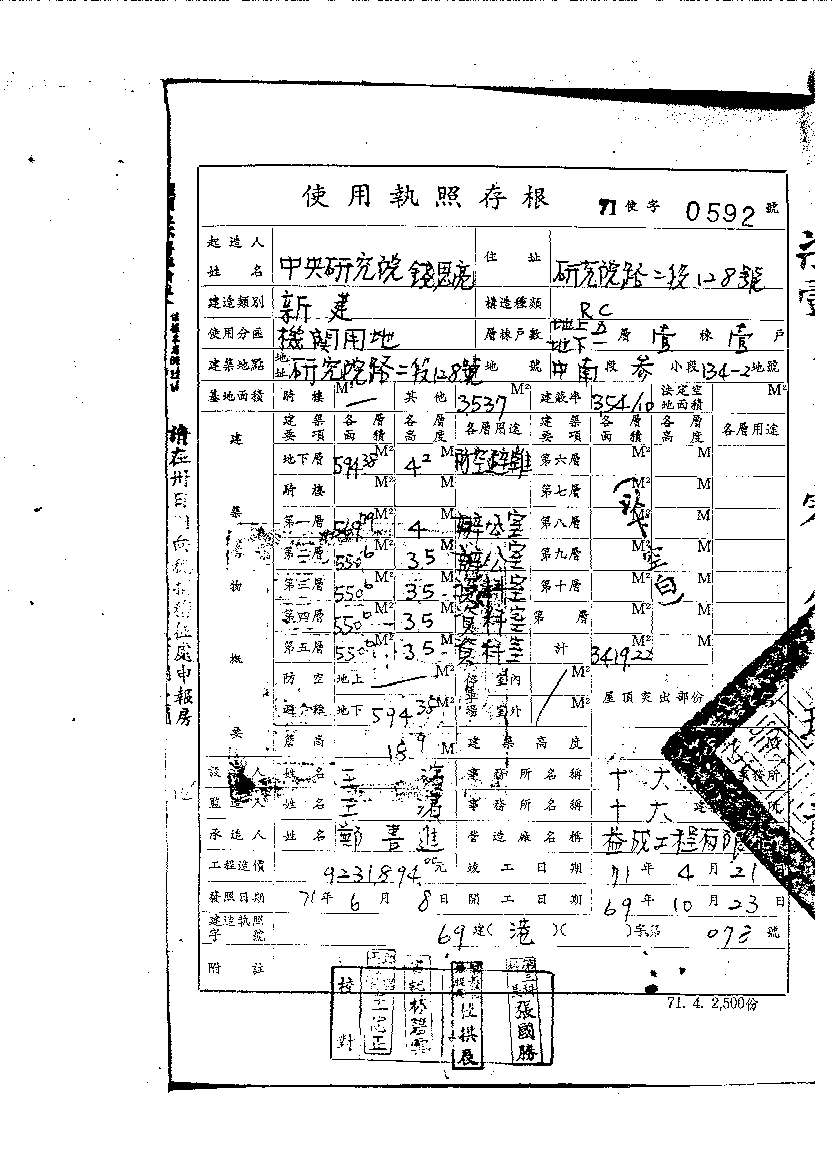 使用執照存根 71使字 0592 號
起造人姓名 中央研究院 錢思亮 住址 研究院路二段128號
建造類別 新建 構造種類 RC
使用分區 機關用地 層棟戶數 地上五 地下一 層 壹 棟 壹 戶
建築地點 地址 研究院路二段128號 地號 中南 段 參 小段 134-2 地號
基地面積 騎樓 M² — 其他 3537 M² 建蔽率 354/10 法定空地面積 M²
建築物概要 建築要項 各層面積 各層高度 各層用途 建築要項 各層面積 各層高度 各層用途
地下層 594.35 M² 4.2 M 防空避難 第六層 M² M
騎樓 M² M 第七層 M² M
第一層 M² 4 M 辦公室 第八層 M² M
第二層 550.6 M² 3.5 M 辦公室 第九層 M² M
第三層 550.6 M² 3.5 M 資料室 第十層 M² M
第四層 550.6 M² 3.5 M 資料室 第 層 M² M
第五層 550.6 M² 3.5 M 資料室 計 3419.22 M² M
空白)
防空避難 地上 — M² 停車場 室內 M² 屋頂突出部份
地下 594.35 M² 室外 M²
簷高 18.9 M 建築高度
設計人 姓名 王 事務所名稱 十大 事務所
監造人 姓名 王 事務所名稱 十大建
承造人 姓名 鄭書進 營造廠名稱 益成工程有限
工程造價 9231894.00元 竣工日期 71年4月21日
發照日期 71年6月8日 開工日期 69年10月23日
建造執照字號 69建(港)( )字第 073 號
附註
71. 4. 2,500份
校對
張國勝